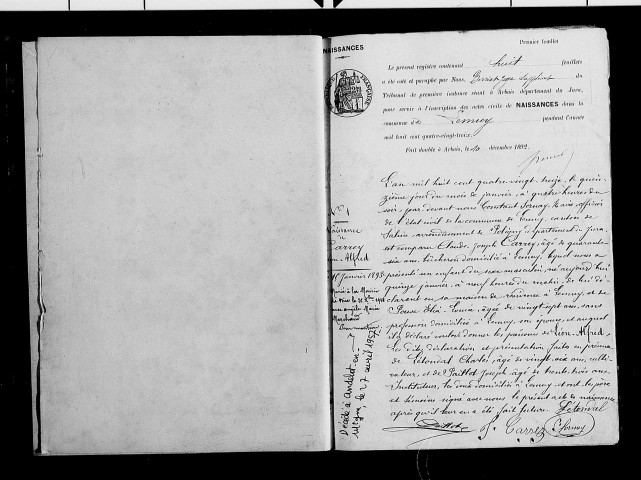 NAISSANCES
Premier feuillet
Le présent registre contenant huit feuillets
a été coté et paraphé par Nous, du
Tribunal de première instance séant à Arbois département du Jura,
pour servir à l'inscription des actes civils de NAISSANCES dans la
commune de Lemuy pendant l'année
mil huit cent quatre-vingt-treize.
Fait double à Arbois, le 10 décembre 1892.
N° 1
Naissance
de
Carrey
Léon-Alfred
15 Janvier 1893
Marié à la Mairie
Décédé à Andelot-en-
Mgne, le 27 avril 1957
L'an mil huit cent quatre-vingt-treize, le quin-
zième jour du mois de janvier, à quatre heures du
soir, par devant nous Constant Fornay, Maire, officier
de l'état civil de la commune de Lemuy, canton de
Salins, arrondissement de Poligny, département du Jura,
est comparu Claude Joseph Carrey, âgé de quarante-
six ans, bûcheron domicilié à Lemuy, lequel nous a
présenté un enfant du sexe masculin, né aujourd'hui
quinze janvier, à neuf heures du matin, de lui dé-
clarant en sa maison de résidence à Lemuy, et de
Louise, âgée de vingt-sept ans, sans
profession, domiciliée à Lemuy, son épouse, et auquel
il a déclaré vouloir donner les prénoms de Léon-Alfred,
les dites déclaration et présentation faites en présence
de Létondal Charles, âgé de vingt-six ans, culti-
vateur, et de Paillot Joseph, âgé de trente-trois ans,
Instituteur, tous deux domiciliés à Lemuy et ont les père
et témoins signé avec nous le présent acte de naissance
après qu'il leur en a été fait lecture. Létondal
Paillot J. Carrey C. Fornay